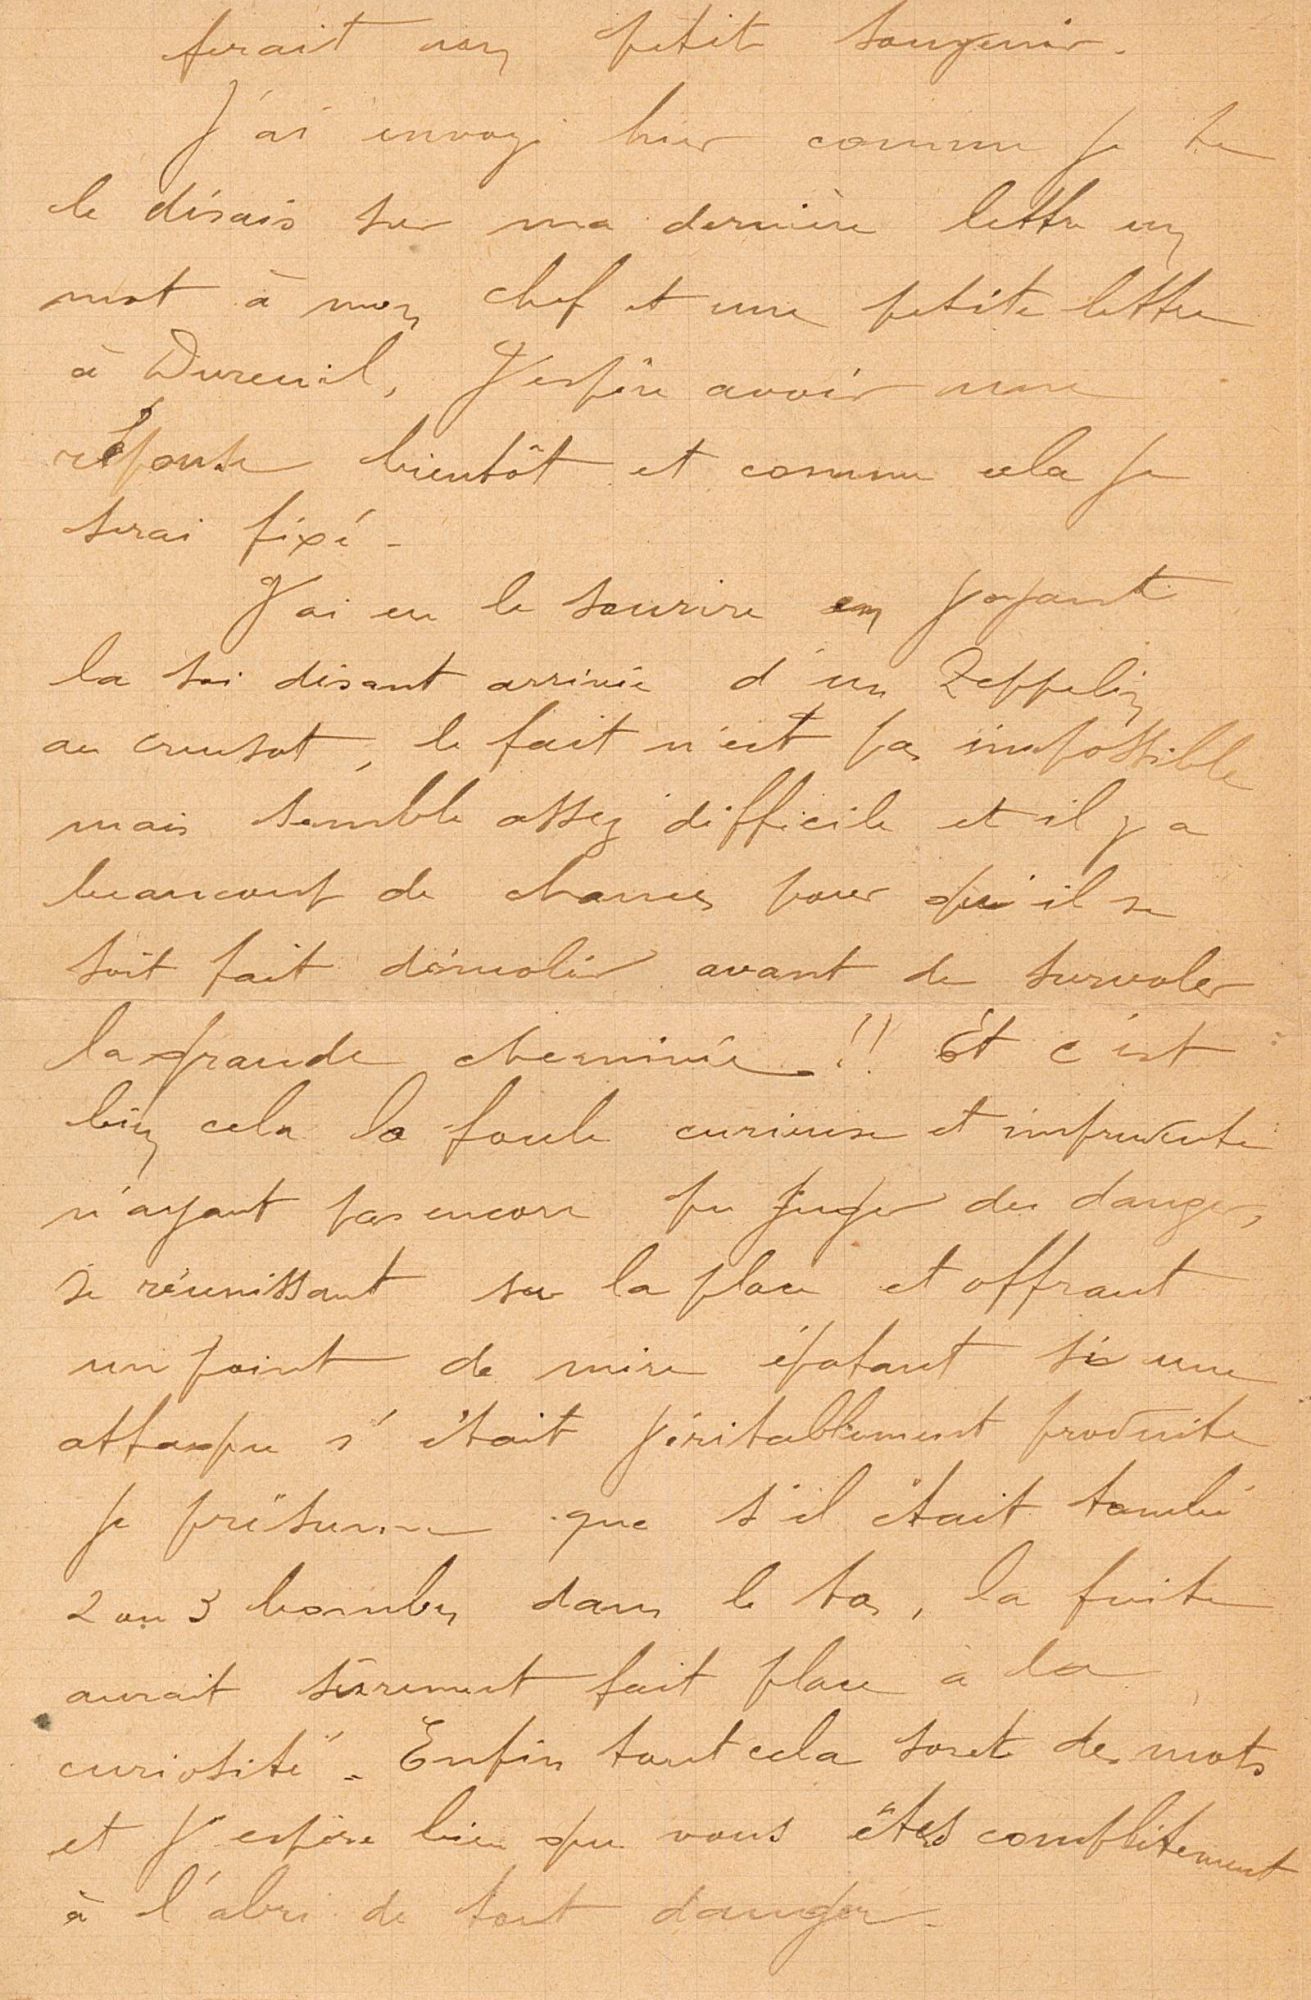 ferait un petit souvenir.
J'ai envoyé hier comme je te
le disais sur ma dernière lettre un
mot à mon chef et une petite lettre
à Dureuil, J'espère avoir une
réponse bientôt et comme cela je
serai fixé -
J'ai eu le sourire en voyant
la soi disant arrivée d'un Zeppelin
au creusot, le fait n'est pas impossible
mais semble assez difficile et il y a
beaucoup de chances pour qu'il se
soit fait démolir avant de survoler
la grande cheminée !! Et c'est
bien cela la foule curieuse et imprudente
n'ayant pas encore pu juger des dangers,
se réunissant sur la place et offrant
un point de mire épatant si une
attaque s'était véritablement produite
je présume que s'il était tombé
2 ou 3 bombes dans le tas, la fuite
aurait sûrement fait place à la
curiosité - Enfin tout cela sont des mots
et j'espère bien que vous êtes complètement
à l'abri de tout danger -